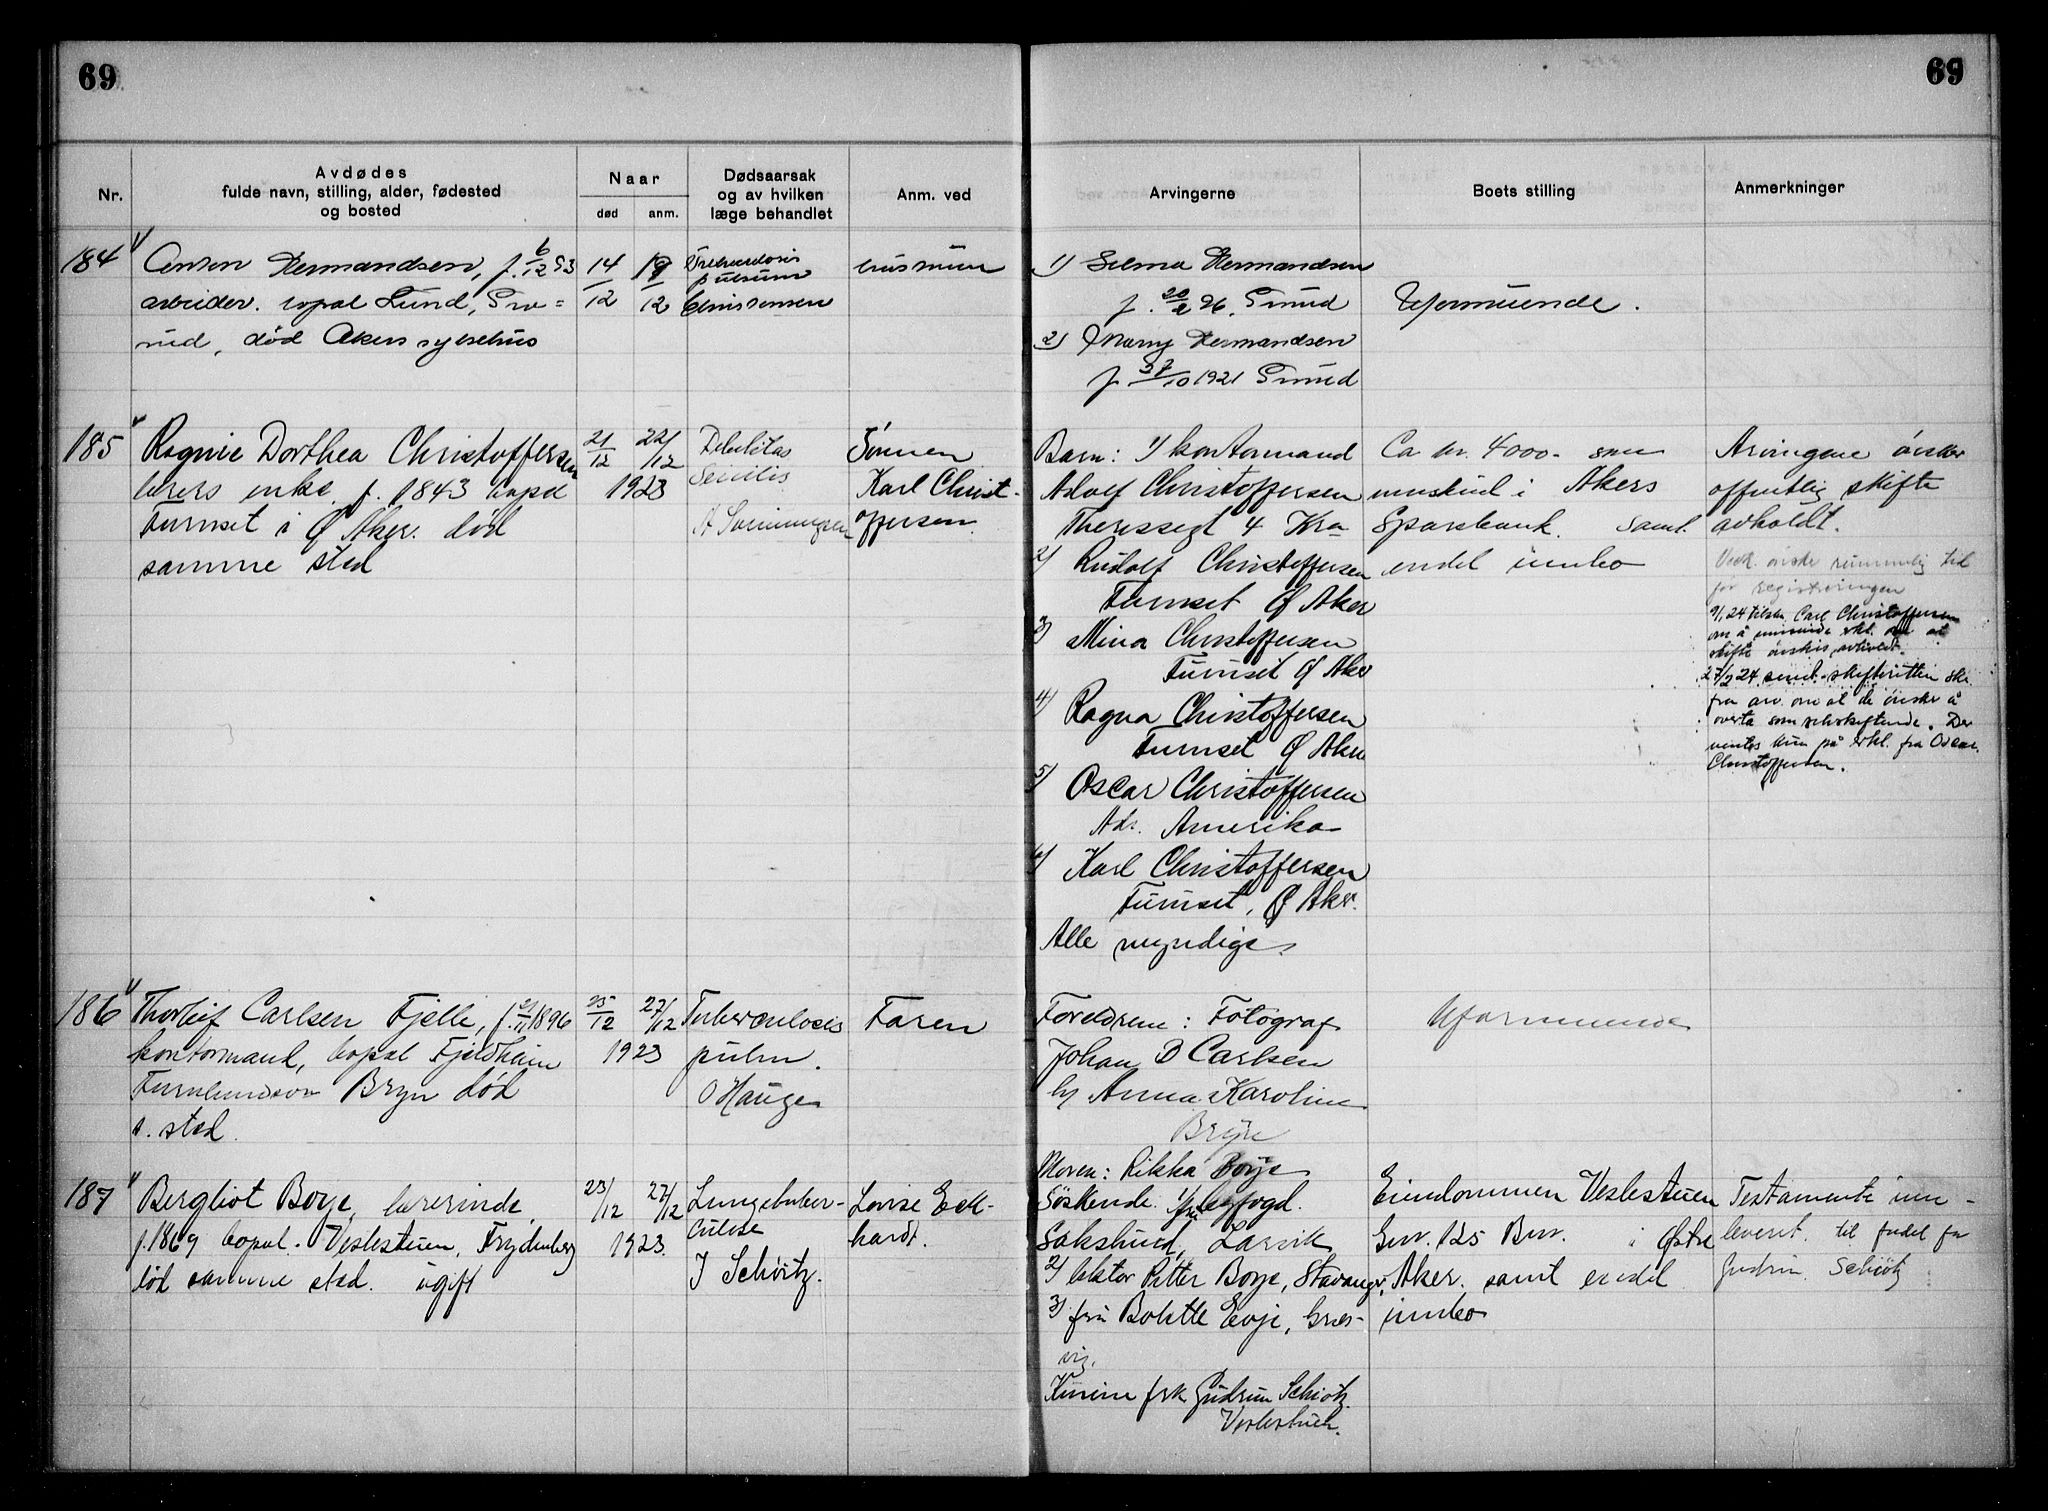 69
69
Nr.
Avdødes
fulde navn, stilling, alder, fødested
og bosted
Naar
død
anm.
Dødsaarsak
og av hvilken
læge behandlet
Anm. ved
Arvingerne
Boets stilling
Anmerkninger
184
Hermandsen, f. 6/12 93
arbeider. bopæl Lund, Gro=
rud, død Akers sykehus
14/12
19/12
Tuberculosis
pulsum
Christensen
1) Selma Hermandsen
f. 20/2 96. Grorud
2) Hermandsen
f. /10 1921 Grorud
Uformuende.
185
Ragnie Dorthea Christoffersen
enke f. 1843 bopæl
Furuset i Ø Aker. død
samme sted
21/12
22/12
1923
Debilitas
Senilis
Sønnen
Karl Christ-
offersen.
Barn: 1) kontormand
Adolf Christoffersen
Theresesgt 4 Kra
2) Rudolf Christoffersen
Furuset Ø Aker
3) Mina Christoffersen
Furuset Ø Aker
4) Ragna Christoffersen
Furuset Ø Aker
5) Oscar Christoffersen
Adr. Amerika
6) Karl Christoffersen
Furuset, Ø Aker.
Alle myndige.
Ca kr. 4000.- som
innskud i Akers
Sparebank. samt
endel innbo
Arvingene ønsker
offentlig skifte
avholdt.
ønske rummelig tid
før registreringen
9/1 24 tilskr. Carl Christoffersen
om å innsende erkl. om at
skifte ønskes avholdt.
27/2 24 sendt skifteretten
fra arv. om at de ønsker å
overta som selvskiftende. Der
ventes kun på erkl. fra Oscar
Christoffersen.
186
Thorleif Carlsen Fjelle, f. 1896
kontormand, bopæl Fjeldheim
Bryn død
s. sted.
25/12
27/12
1923
Tuberculosis
pulm.
O Hauge
Faren
Foreldrene: Fotograf
Johan B Carlsen
og Anna Karoline
Bryn
Uformuende
187
Bergliot Borge, lærerinde
f. 1869 bopæl. Veslestuen, Frydenberg
død samme sted. ugift
23/12
27/12
1923
Lungetuber-
culose
J Schiøtz.
Lovise Eck-
hardt.
Moren: Rikka Borge
Søskende. 1) byfogd.
Sakslund, Larvik
2) lektor Petter Borge, Stavanger,
3) fru Bolette Evje, Græs-
vig.
Kusine frk Gudrun Schiøtz
Veslestuen.
Eiendommen Veslestuen
Gnr. 125 Bnr. i Østre
Aker. samt endel
innbo
Testamente inn-
leveret. til fordel for
Gudrun Schiøtz